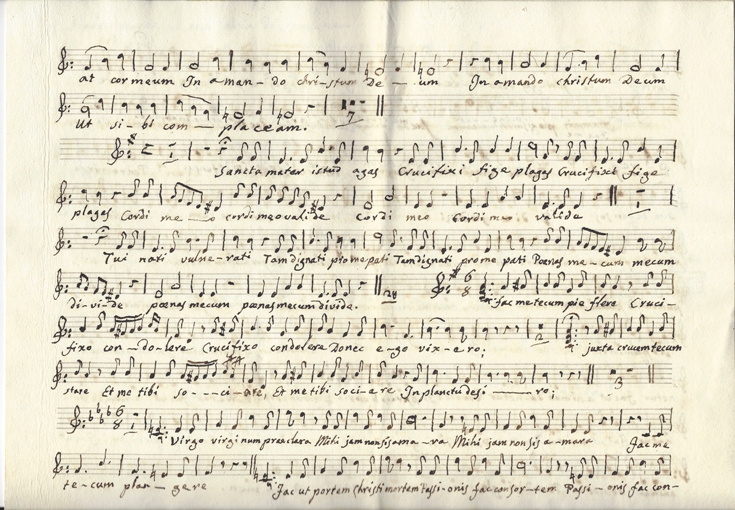 at cor meum In a man - do chri - stum De - um In amando christum Deum
Ut si - bi com - placeam. 7
Sancta mater istud agas Crucifixi fige plagas Crucifixi fige
plagas Cordi me - o cordi meo valide cordi meo Cordi meo valide
Tui nati vulne - rati Tam dignati pro me pati Tam dignati pro me pati Poenas me - cum mecum
di - vi - de poenas mecum poenas mecum divide. 24 6 8 fac me tecum pie flere Cruci -
fixo con - do - lere Crucifixo condolere Donec e - go vixe - ro; 2 juxta crucem tecum
stare Et me tibi so - - - ci - are, Et me tibi sociere In planctu desi - ro; 3
6 8 Virgo virginum preclara Mihi jam non sis ama - ra Mihi jam non sis a - mara fac me
te - cum plan - gere fac ut portem Christi mortem Passi - onis fac consor - tem Passi - onis fac con -